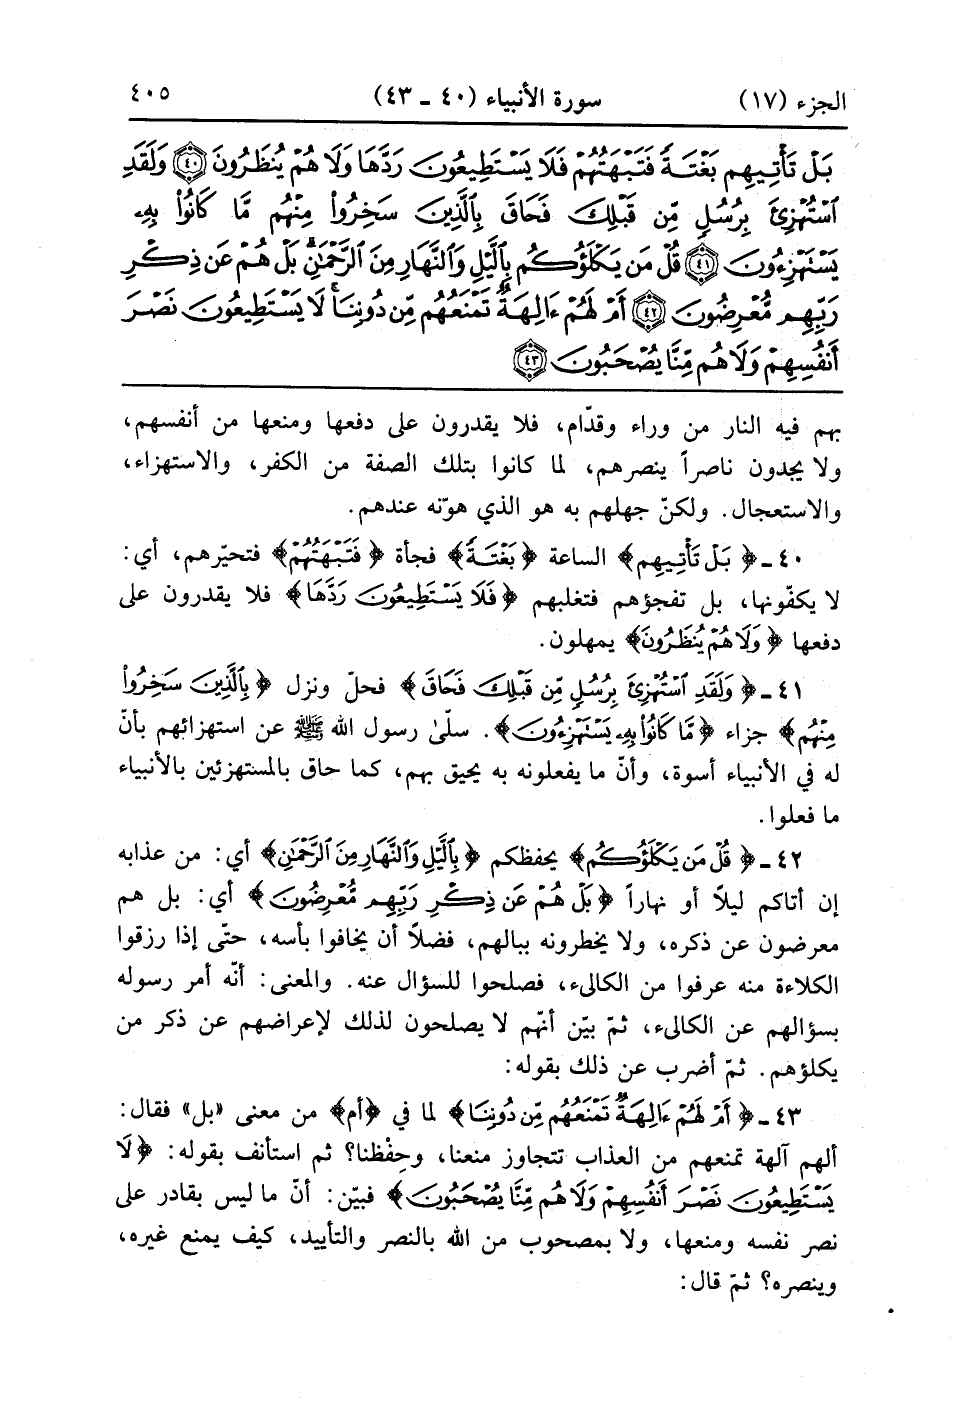 الجزء (١٧) سورة الأنبياء (٤٠ - ٤٣) ٤٠٥
بَلْ تَأْتِيهِم بَغْتَةً فَتَبْهَتُهُمْ فَلَا يَسْتَطِيعُونَ رَدَّهَا وَلَا هُمْ يُنظَرُونَ ﴿٤٠﴾ وَلَقَدِ
ٱسْتُهْزِئَ بِرُسُلٍ مِّن قَبْلِكَ فَحَاقَ بِٱلَّذِينَ سَخِرُوا۟ مِنْهُم مَّا كَانُوا۟ بِهِۦ
يَسْتَهْزِءُونَ ﴿٤١﴾ قُلْ مَن يَكْلَؤُكُم بِٱلَّيْلِ وَٱلنَّهَارِ مِنَ ٱلرَّحْمَٰنِ ۗ بَلْ هُمْ عَن ذِكْرِ
رَبِّهِم مُّعْرِضُونَ ﴿٤٢﴾ أَمْ لَهُمْ ءَالِهَةٌ تَمْنَعُهُم مِّن دُونِنَا ۚ لَا يَسْتَطِيعُونَ نَصْرَ
أَنفُسِهِمْ وَلَا هُم مِّنَّا يُصْحَبُونَ ﴿٤٣﴾
بهم فيه النار من وراء وقدّام، فلا يقدرون على دفعها ومنعها من أنفسهم،
ولا يجدون ناصراً ينصرهم، لما كانوا بتلك الصفة من الكفر، والاستهزاء،
والاستعجال. ولكنّ جهلهم به هو الذي هوّنه عندهم.
٤٠ - ﴿بَلْ تَأْتِيهِم﴾ الساعة ﴿بَغْتَةً﴾ فجأة ﴿فَتَبْهَتُهُمْ﴾ فتحيّرهم، أي:
لا يكفّونها، بل تفجؤهم فتغلبهم ﴿فَلَا يَسْتَطِيعُونَ رَدَّهَا﴾ فلا يقدرون على
دفعها ﴿وَلَا هُمْ يُنظَرُونَ﴾ يمهلون.
٤١ - ﴿وَلَقَدِ ٱسْتُهْزِئَ بِرُسُلٍ مِّن قَبْلِكَ فَحَاقَ﴾ فحلّ ونزل ﴿بِٱلَّذِينَ سَخِرُوا۟
مِنْهُم﴾ جزاء ﴿مَّا كَانُوا۟ بِهِۦ يَسْتَهْزِءُونَ﴾. سلّىٰ رسول الله ﷺ عن استهزائهم بأنّ
له في الأنبياء أسوة، وأنّ ما يفعلونه به يحيق بهم، كما حاق بالمستهزئين بالأنبياء
ما فعلوا.
٤٢ - ﴿قُلْ مَن يَكْلَؤُكُم﴾ يحفظكم ﴿بِٱلَّيْلِ وَٱلنَّهَارِ مِنَ ٱلرَّحْمَٰنِ﴾ أي: من عذابه
إن أتاكم ليلاً أو نهاراً ﴿بَلْ هُمْ عَن ذِكْرِ رَبِّهِم مُّعْرِضُونَ﴾ أي: بل هم
معرضون عن ذكره، ولا يخطرونه ببالهم، فضلاً أن يخافوا بأسه، حتّى إذا رزقوا
الكلاءة منه عرفوا من الكالىء، فصلحوا للسؤال عنه. والمعنى: أنّه أمر رسوله
بسؤالهم عن الكالىء، ثمّ بيّن أنهّم لا يصلحون لذلك لإعراضهم عن ذكر من
يكلؤهم. ثمّ أضرب عن ذلك بقوله:
٤٣ - ﴿أَمْ لَهُمْ ءَالِهَةٌ تَمْنَعُهُم مِّن دُونِنَا﴾ لما في ﴿أم﴾ من معنى «بل» فقال:
ألهم آلهة تمنعهم من العذاب تتجاوز منعنا، وحِفْظنا؟ ثم استأنف بقوله: ﴿لَا
يَسْتَطِيعُونَ نَصْرَ أَنفُسِهِمْ وَلَا هُم مِّنَّا يُصْحَبُونَ﴾ فبيّن: أنّ ما ليس بقادر على
نصر نفسه ومنعها، ولا بمصحوب من الله بالنصر والتأييد، كيف يمنع غيره،
وينصره؟ ثمّ قال: